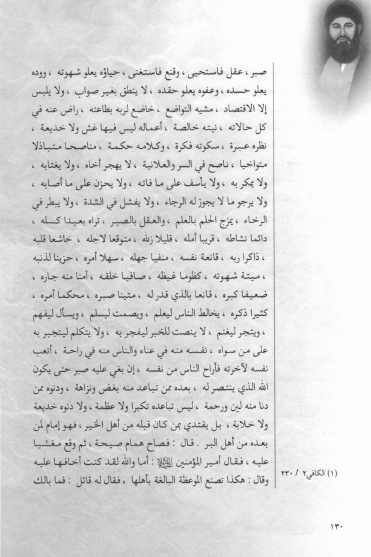 صبر ، عقل فاستحيى ، وقنع فاستغنى ، حياؤه يعلو شهوته ، ووده
يعلو حسده ، وعفوه يعلو حقده ، لا ينطق بغير صواب ، ولا يلبس
إلا الاقتصاد ، مشيه التواضع ، خاضع لربه بطاعته ، راض عنه في
كل حالاته ، نيته خالصة ، أعماله ليس فيها غش ولا خديعة ،
نظره عبرة ، سكوته فكرة ، وكلامه حكمة ، مناصحا متباذلا
متواخيا ، ناصح في السر والعلانية ، لا يهجر أخاه ، ولا يغتابه ،
ولا يمكر به ، ولا يأسف على ما فاته ، ولا يحزن على ما أصابه ،
ولا يرجو ما لا يجوز له الرجاء ، ولا يفشل في الشدة ، ولا يبطر في
الرخاء ، يمزج الحلم بالعلم ، والعقل بالصبر ، تراه بعيدا كسله ،
دائما نشاطه ، قريبا أمله ، قليلا زلله ، متوقعا لاجله ، خاشعا قلبه
، ذاكرا ربه ، قانعة نفسه ، منفيا جهله ، سهلا أمره ، حزينا لذنبه
، ميتة شهوته ، كظوما غيظه ، صافيا خلقه ، آمنا منه جاره ،
ضعيفا كبره ، قانعا بالذي قدر له ، متينا صبره ، محكما أمره ،
كثيرا ذكره ، يخالط الناس ليعلم ، ويصمت ليسلم ، ويسأل ليفهم
، ويتجر ليغنم ، لا ينصت للخبر ليفجر به ، ولا يتكلم ليتجبر به
على من سواه ، نفسه منه في عناء والناس منه في راحة ، أتعب
نفسه لآخرته فأراح الناس من نفسه ، إن بغي عليه صبر حتى يكون
الله الذي ينتصر له ، بعده ممن تباعد منه بغض ونزاهة ، ودنوه ممن
دنا منه لين ورحمة ، ليس تباعده تكبرا ولا عظمة ، ولا دنوه خديعة
ولا خلابة ، بل يقتدي بمن كان قبله من أهل الخير ، فهو إمام لمن
بعده من أهل البر . قال : فصاح همام صيحة ، ثم وقع مغشيا
عليه ، فقال أمير المؤمنين : أما والله لقد كنت أخافها عليه
وقال : هكذا تصنع الموعظة البالغة بأهلها ، فقال له قائل : فما بالك
(١) الكافي٢ / ٢٣٠
١٣٠